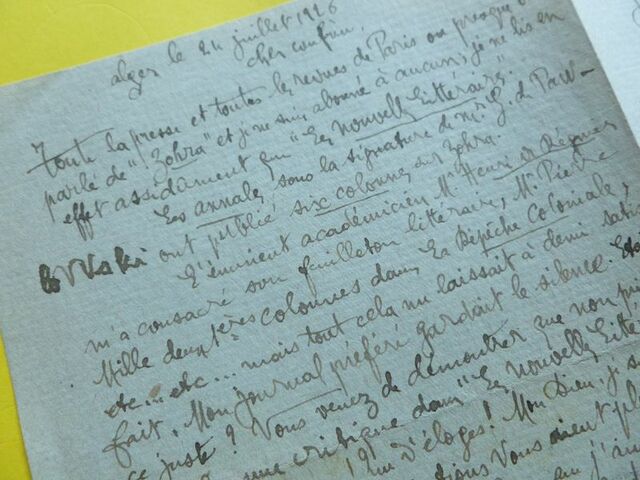 alger le 24 juillet 1926
cher confrère,
Toute la presse et toutes les revues de Paris ou presque o
parlé de "Zohra" et je ne suis abonné à aucun, je ne lis en
effet assidument que "Les nouvelles littéraires".
Les annales sous la signature de Mr G. de Paw-
lowski ont publié six colonnes sur Zohra.
L'éminent académicien Mr Henri de Régnier
m'a consacré son feuilleton littéraire, Mr Pierre
Mille deux 1ères colonnes dans La Dépêche Coloniale,
etc... etc... mais tout cela me laissait à demi satis
fait. Mon journal préféré gardait le silence. Etai
ce juste ? Vous venez de démontrer que non puis
une critique dans "Les nouvelles littér
d'éloges! Mon Dieu, je s
Vous vient pl
que j'ai